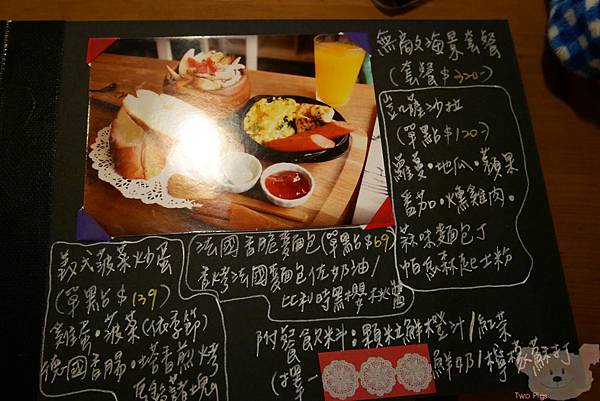 無敵海景套餐
(套餐$320-)
凱薩沙拉
(單點$120-)
蘿蔓·地瓜·蘋果
番茄·燻雞肉·
蒜味麵包丁
帕瑪森起士粉
法國香脆麵包(單點$69)
香烤法國麵包佐奶油/
比利時黑櫻桃醬
義式菠菜炒蛋
(單點$139)
雞蛋·菠菜(依季節)
德國香腸·塔香煎烤
馬鈴薯塊
附餐飲料:顆粒鮮橙汁/紅茶
(擇一
鮮奶/檸檬蘇打
Two Pigs